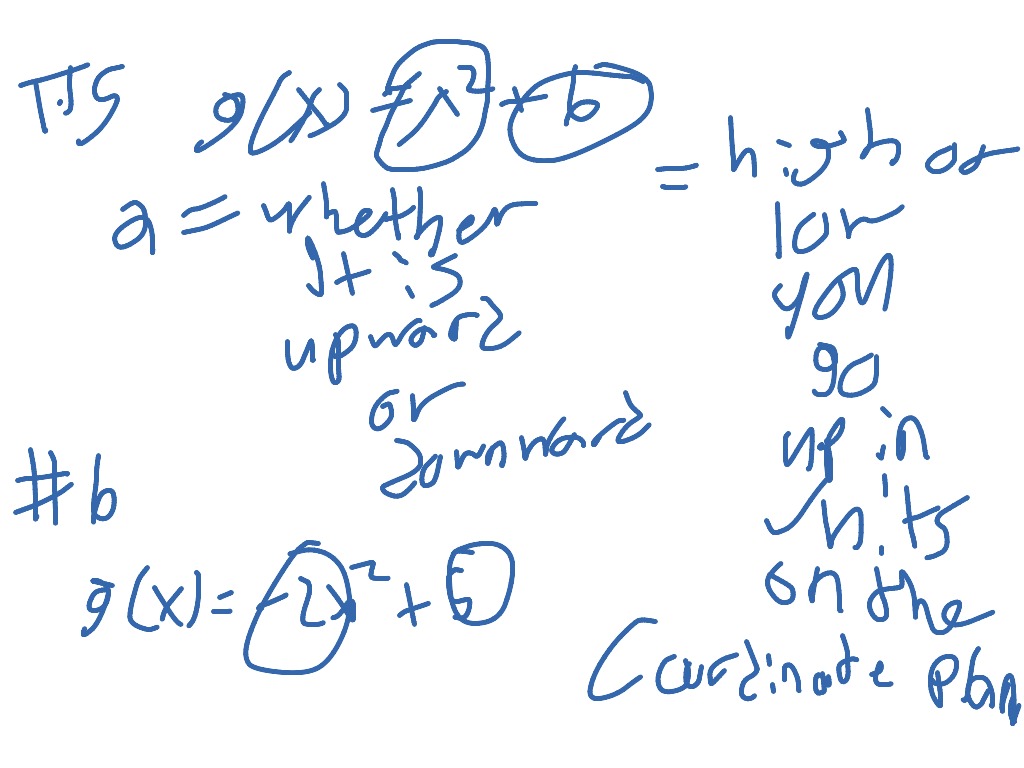 T.J5 g(x) = x² + b
a = whether
It is
upward
or
downward
= high or
low
you
go
up in
units
on the
Coordinate plan
#6
g(x) = -2x² + 5